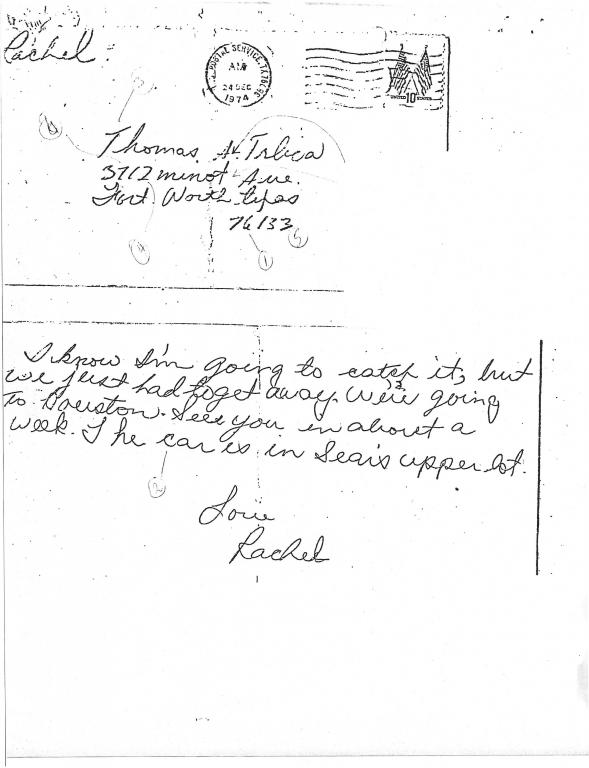 Rachel
POSTAL SERVICE, TX
AM
24 DEC
1974
10c
Thomas A. Trlica
3712 minot Ave.
Fort Worth Texas
76133
1
I know I'm going to catch it, but
we just had to get away. We're going
to Houston. See you in about a
week. The car is in Sear's upper lot.
2
Love
Rachel